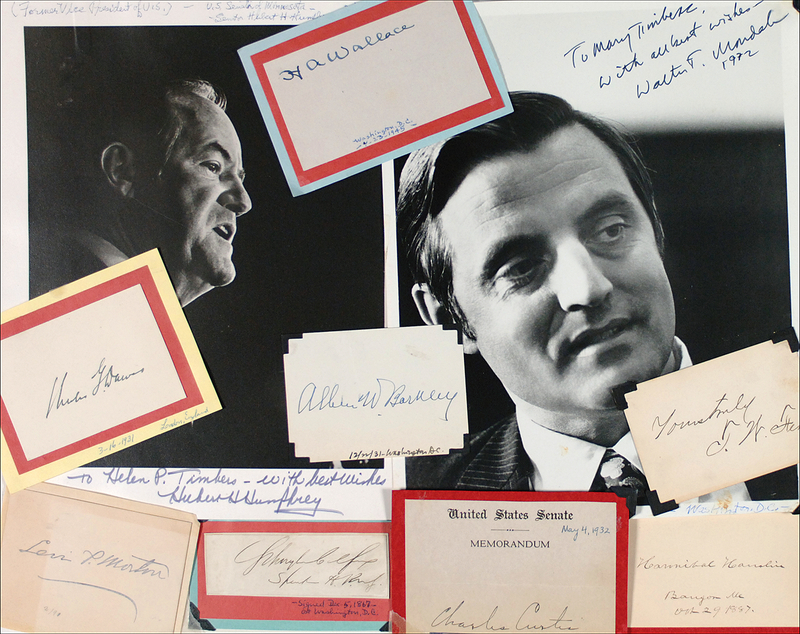 (Former Vice President of U.S.) - U.S. Senator Minnesota -
Senator Hubert H. Humphrey
H A Wallace
Washington, D.C.
To Mary Timbers,
with all best wishes -
Walter F. Mondale
1972
Charles G. Dawes
3-16-1931
London England
Alben W. Barkley
12/21/31 - Washington, D.C.
Yours truly
T. W.
To Helen P. Timbers - with best wishes
Hubert H Humphrey
Washington, D.C.
Levi P. Morton
Schuyler Colfax
Signed Dec. 5, 1867 -
at Washington, D.C.
United States Senate
May 4, 1932
MEMORANDUM
Charles Curtis
Hannibal Hamlin
Bangor Me
Oct 29 1887.